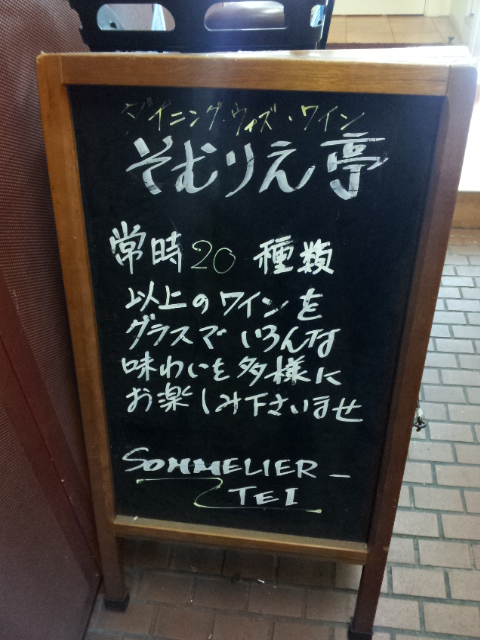 ダイニング・ウィズ・ワイン
そむりえ亭
常時20種類
以上のワインを
グラスでいろんな
味わいを多様に
お楽しみ下さいませ
SOMMELIER-
TEI